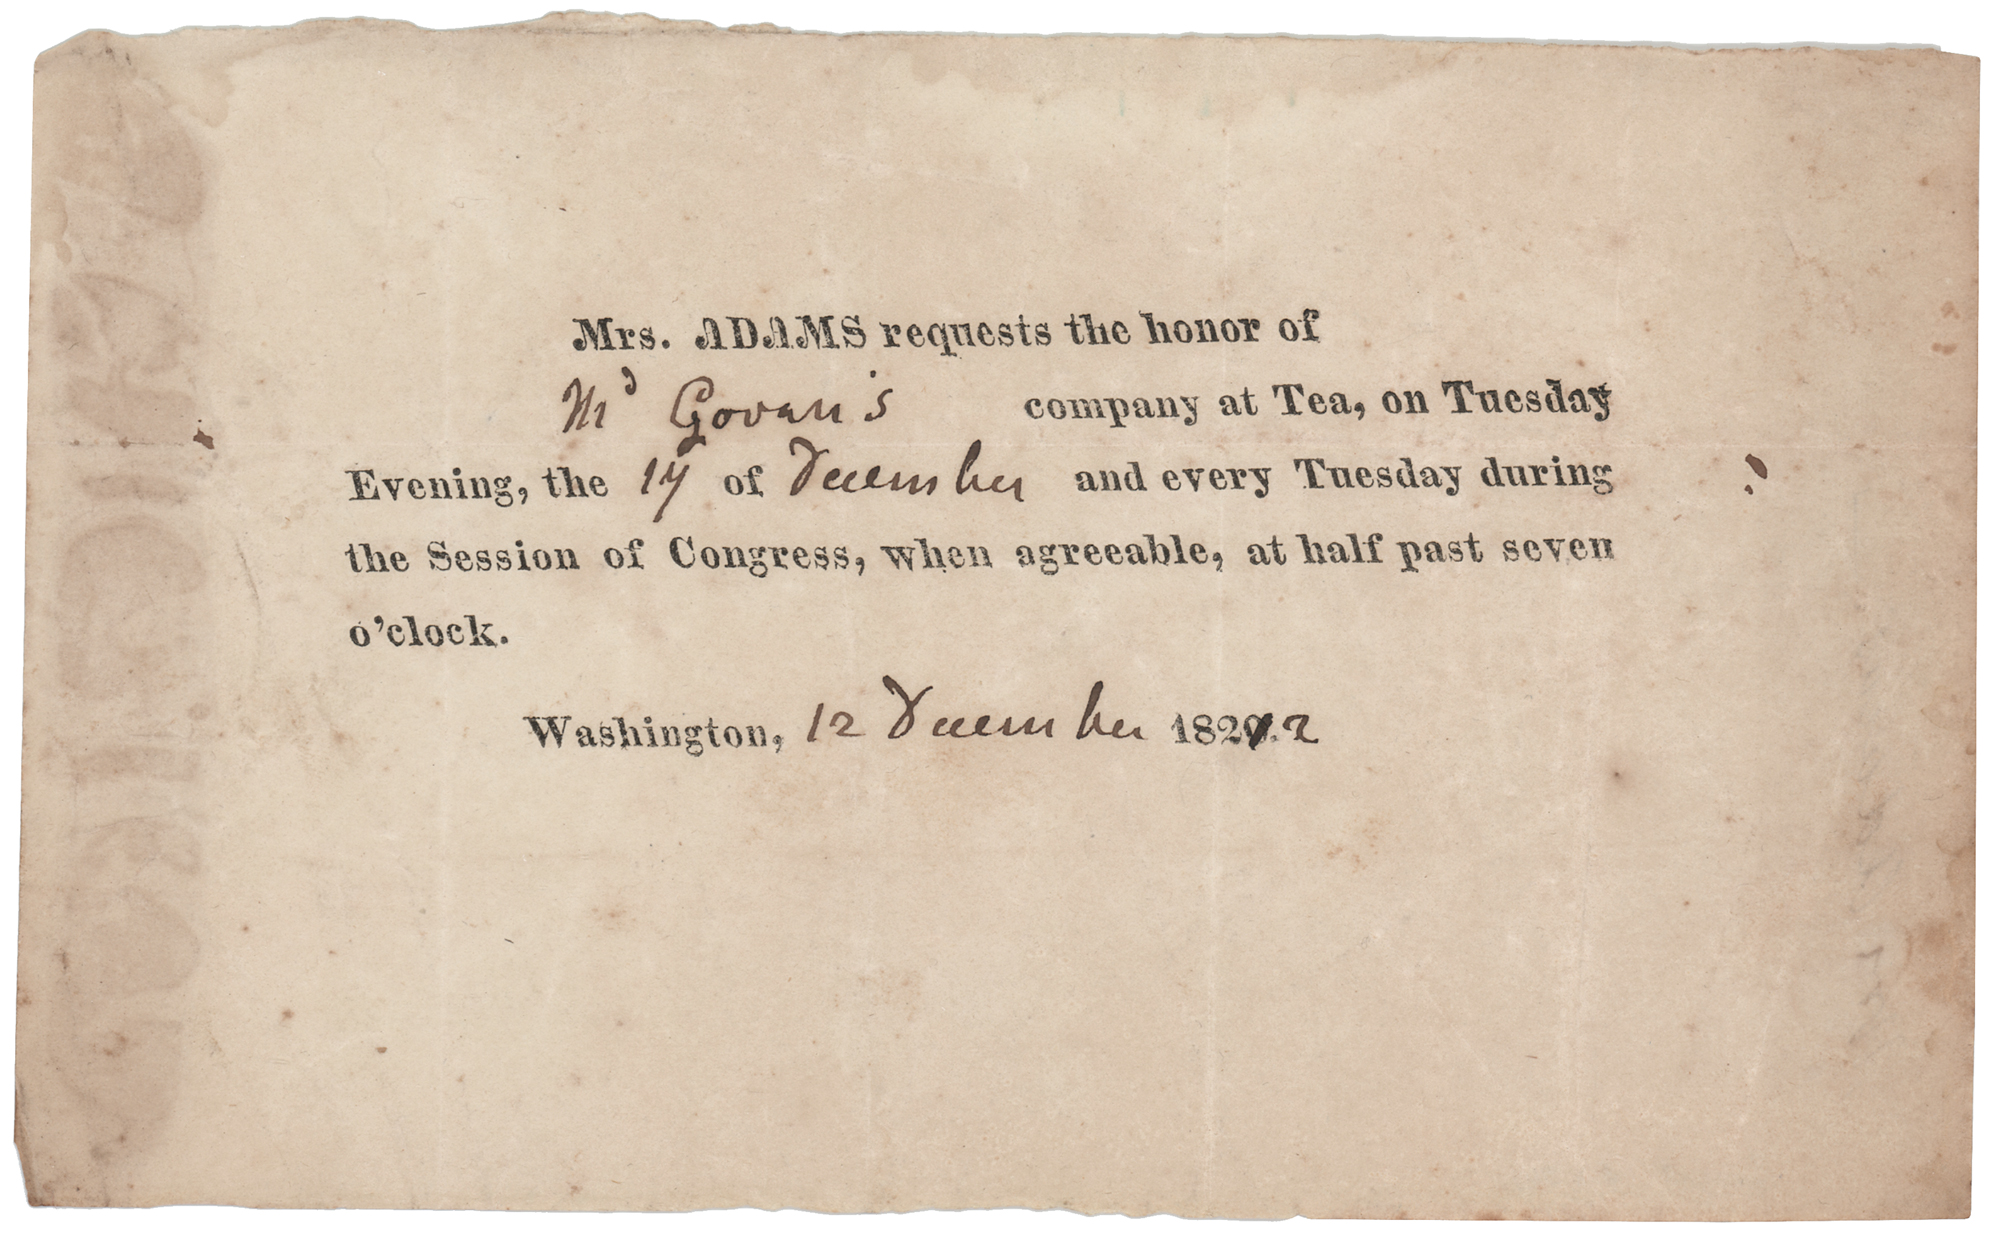 Mrs. ADAMS requests the honor of
Mr Govan's company at Tea, on Tuesday
Evening, the 17 of December and every Tuesday during
the Session of Congress, when agreeable, at half past seven
o'clock.
Washington, 12 December 182.2